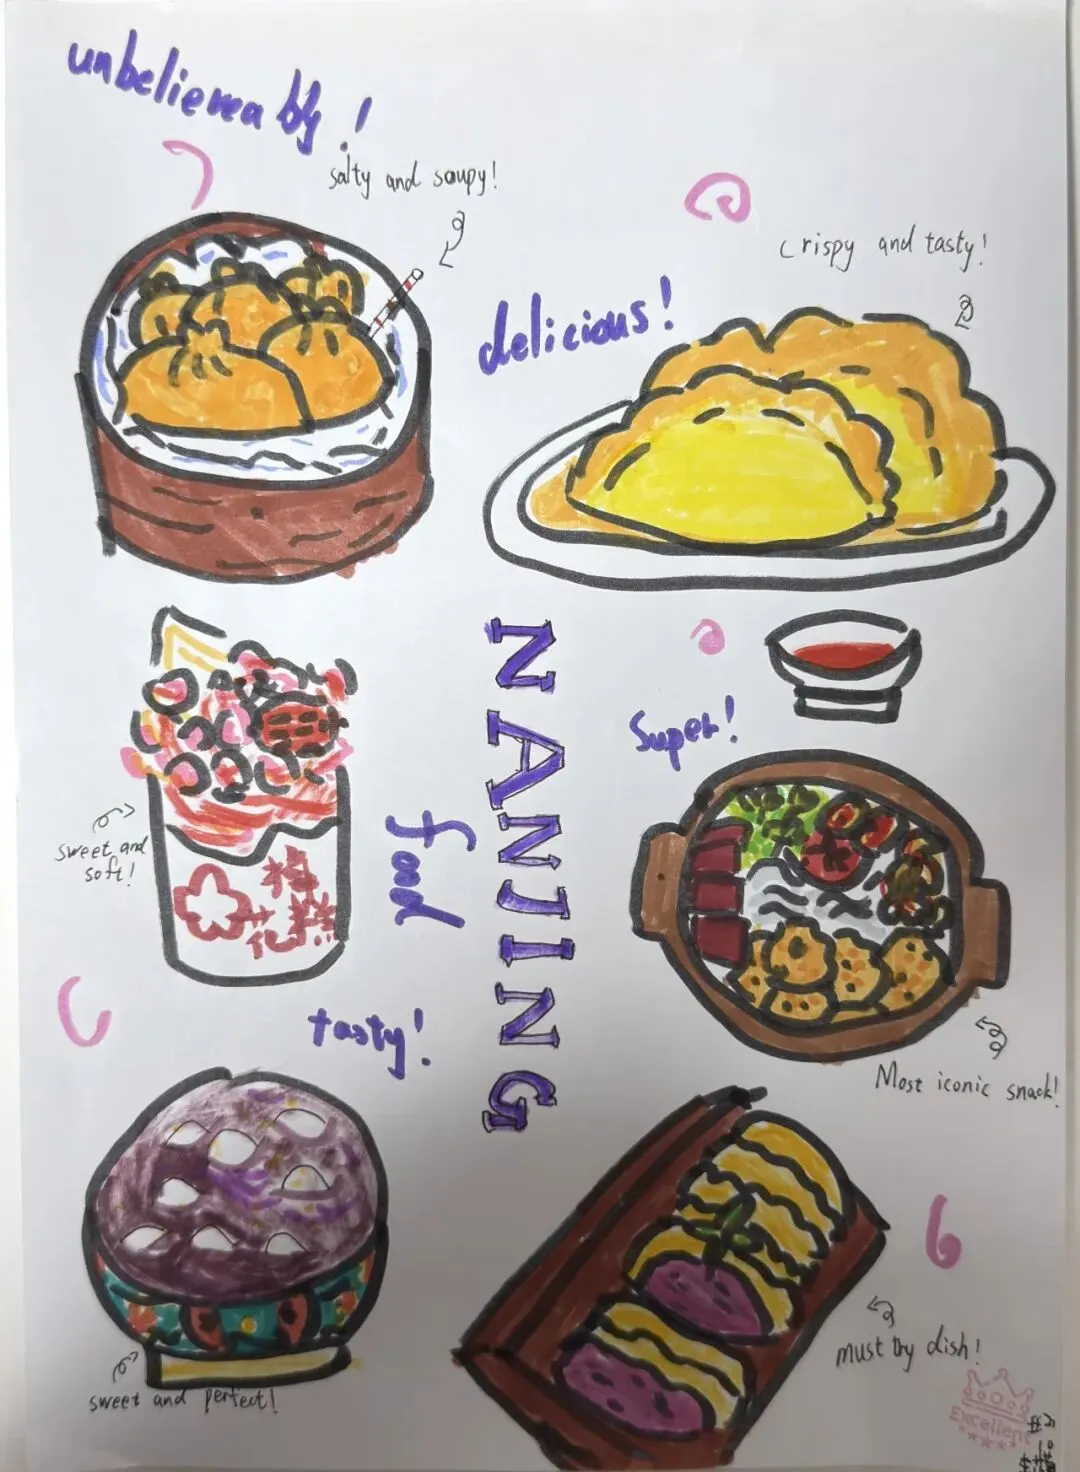 unbelievably!
salty and soupy!
crispy and tasty!
delicious!
NANJING
food
super!
sweet and
soft!
梅花
tasty!
Most iconic snack!
sweet and perfect!
must try dish!
6
Excellent